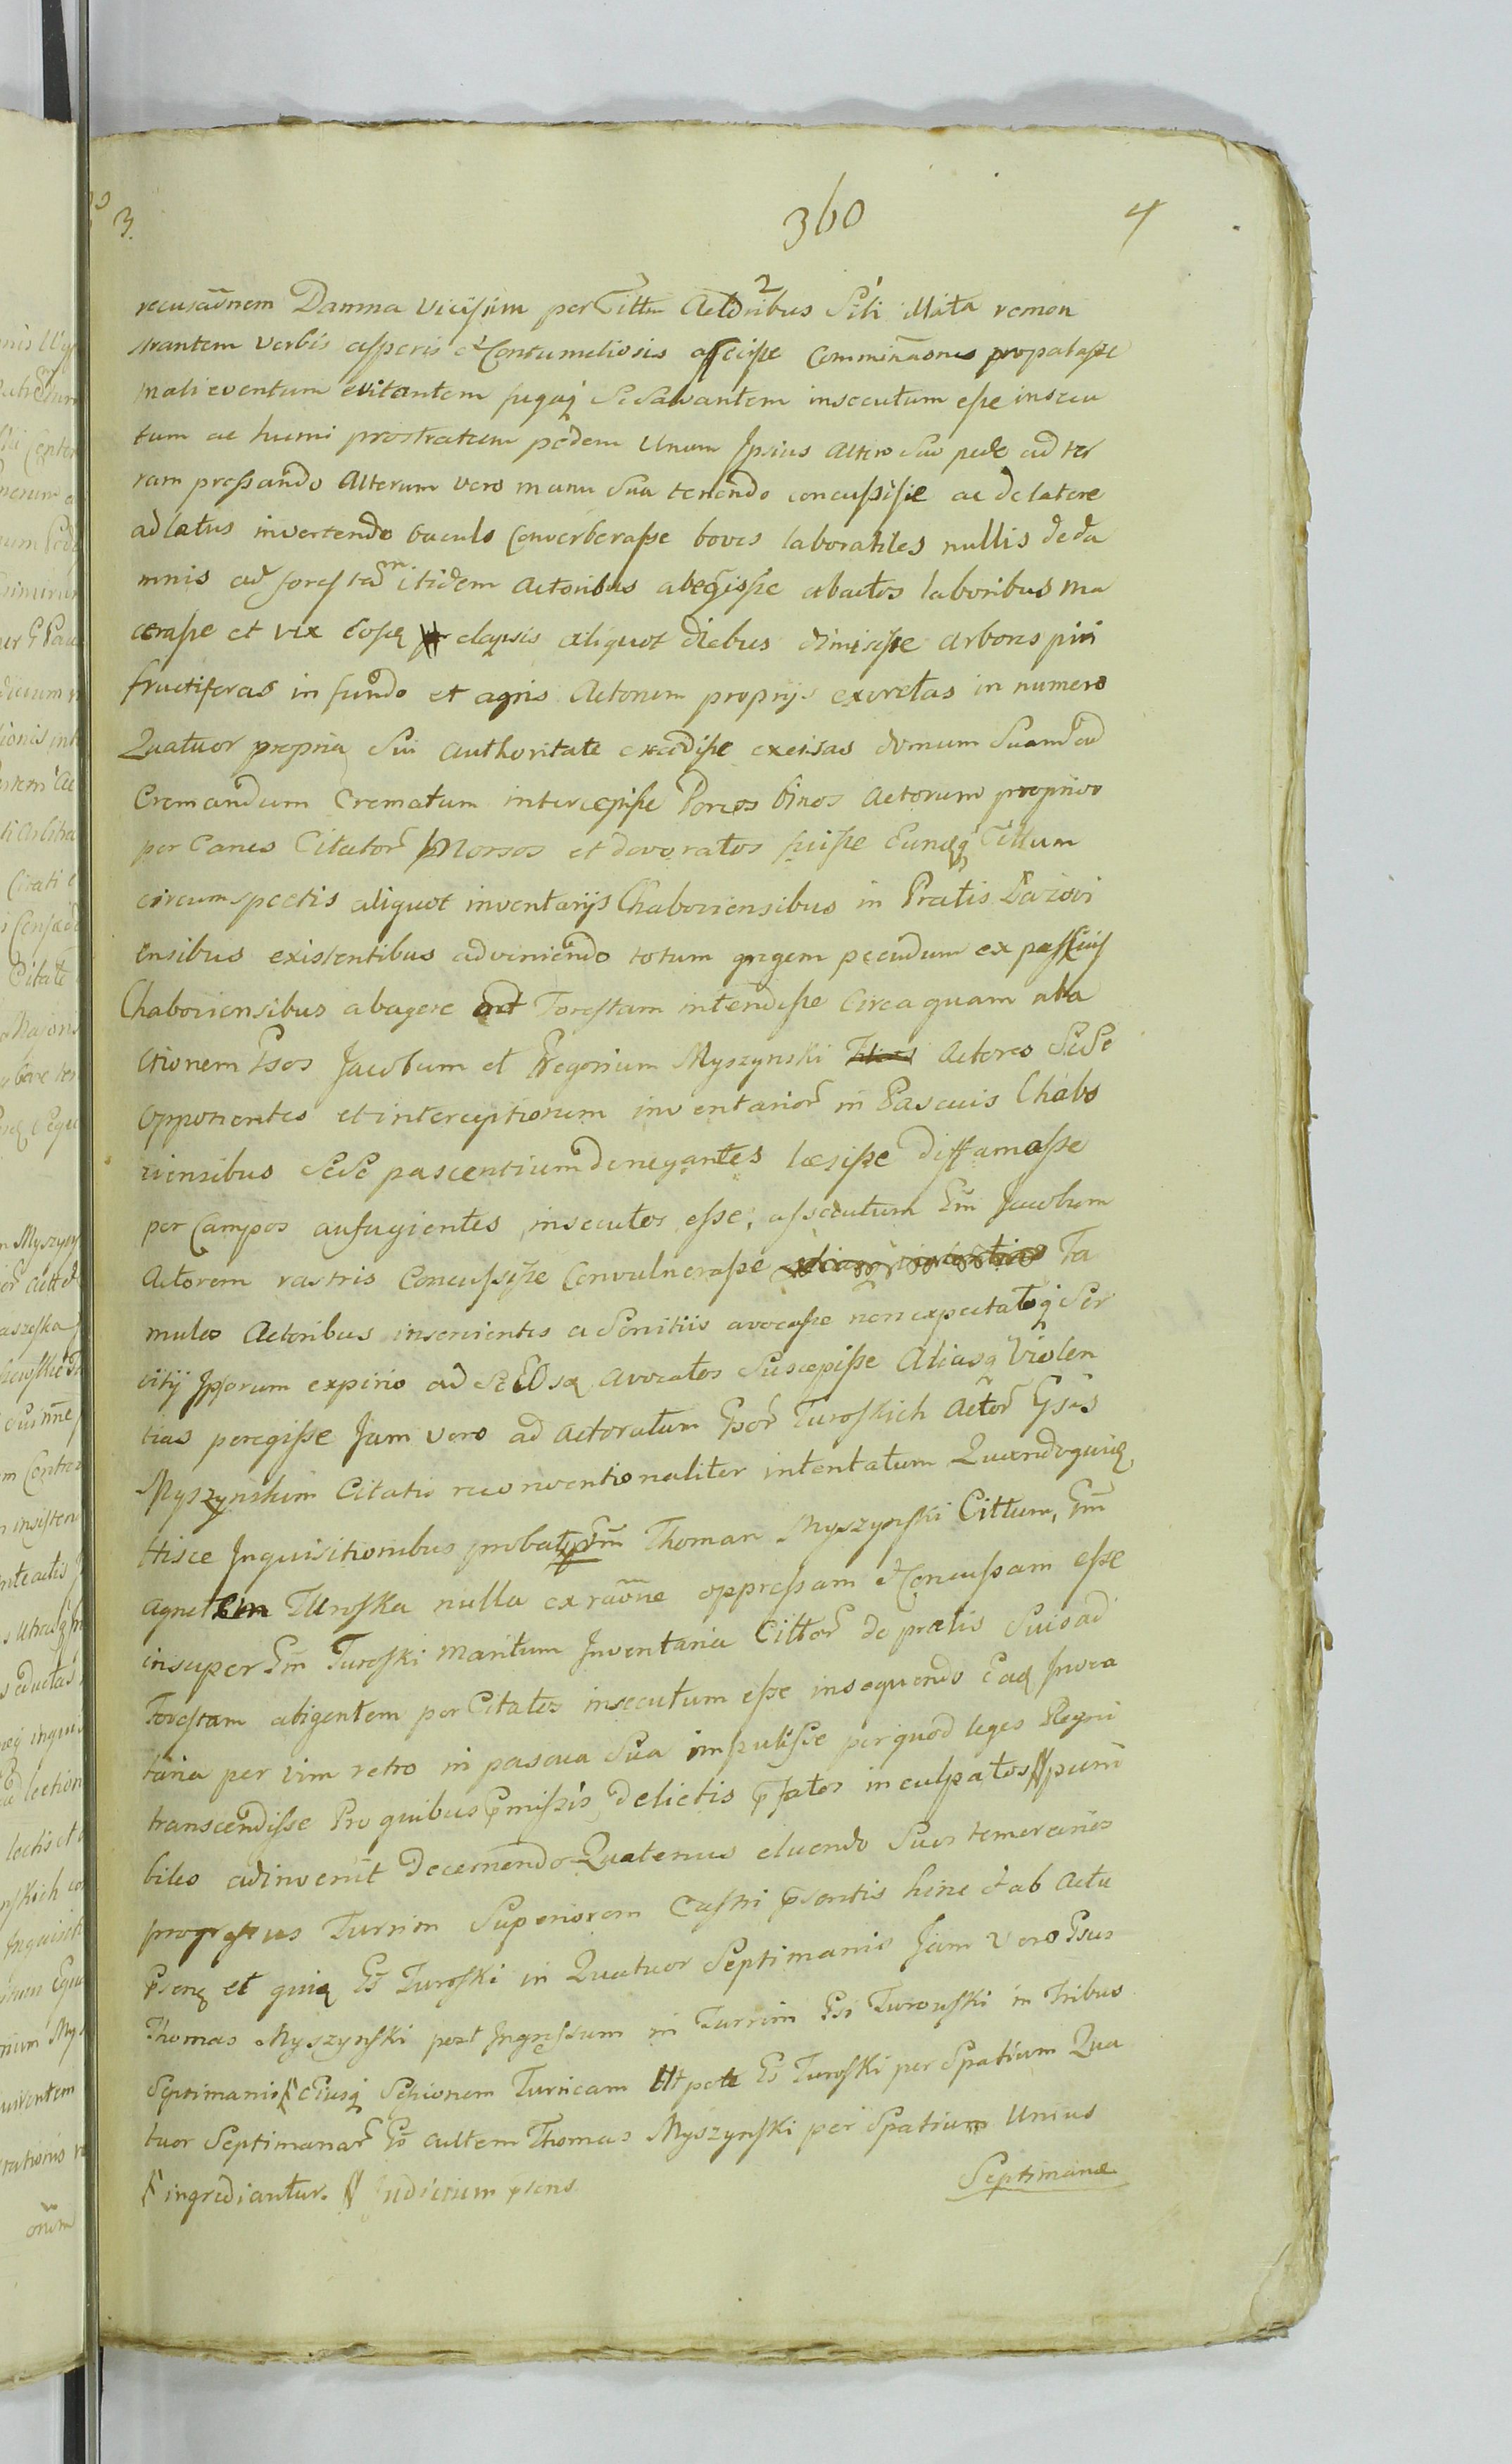 3. 360 4
recusaōnem Damna vicissim per Cittm Actoribus Sibi illata remon
strantem verbis asperis et Contumeliosis affecisse Comminaōnes propalasse
mali eventum evitantem fugaq̃ Se Salvantem insecutum esse insecu
tum ac humi prostratum pedem Unum Ipsius Altero Suo pede ad ter
ram pressando Alterum vero manu Sua tenendo concussisse ac de latere
ad latus invertendo baculo Converberasse boves laborabiles nullis de da
mnis ad forestam itidem Actoribus abegisse abactos laboribus ma
cerasse et vix Eosq elapsis aliquot diebus dimisisse arbores piri
fructiferas in fundo et agris Actorum proprijs excretas in numero
Quatuor propria Sui authoritate excidisse excisas domum Suam ad
Cremandum Crematum intercepisse Porcos binos Actorum proprios
per Canes Citator̃ Morsos et devoratos fuisse Eundq̃ Cittum
circumspectis aliquot inventarijs Chaboviensibus in Pratis
ensibus existentibus adveniendo totum gregem pecudum ex pascuis
Chaboviensibus abagere ad Forestam intendisse Circa quam aba
ctionem Gsos Jacobum et Gregorium Myszynski Actores SeSe
opponentes et interceptionem inventarior̃ in Pascuis Chabo
viensibus SeSe pascentium denegantes læsisse diffamasse
per Campos aufugientes insecutos esse, assecutum Gm̃ Jacobum
Actorem rastris Concussisse Convulnerasse Fa
mulos Actoribus inservientes a Servitiis avocasse non expectatoq̃ Ser
vitij Ipsorum expirio ad Se EOsq avocatos Suscepisse Aliasq Violen
tias peregisse Jam vero ad Actoratum Gsor̃ Turoskich Actor̃ Gsis
Myszynskim Citatis reconventionaliter intentatum Quandoquidq
Hisce Inquisitionibus probatq Gm̃ Thoman Myszynski Cittum, Gm̃
Agnetem Turoska nulla ex raōne oppressam et Concussam esse
insuper Gm̃ Turoski Maritum Inventaria Cittor̃ de pratis Suis ad
Forestam abigentem per Citatos insecutum esse insequendo Eaq Inven
taria per vim retro in pascua Sua impulisse per quod leges Regni
transcendisse Pro quibus p̃missis delictis p̃fatos inculpatos punī
biles adinvenit Decernendo Quatenus eluendo Suos temerarios
progressus Turrim Superiorem Castri p̃sentis hinc et ab Actu
p̃senq et quiq Gs̃ Turoski in Quatuor Septimanis Jam vero Gsus
Thomas Myszynski post Ingressum in Turrim Gsi Turowski in Tribus
Septimanis Ejusq̃ Sessionem Turricam Utpote Gs̃ Turoski per Spatium Qua
tuor Septimanar̃ Gs̃ autem Thomas Myszynski per Spatium Unius
ingrediantur. Judicium p̃sens
Septimanæ